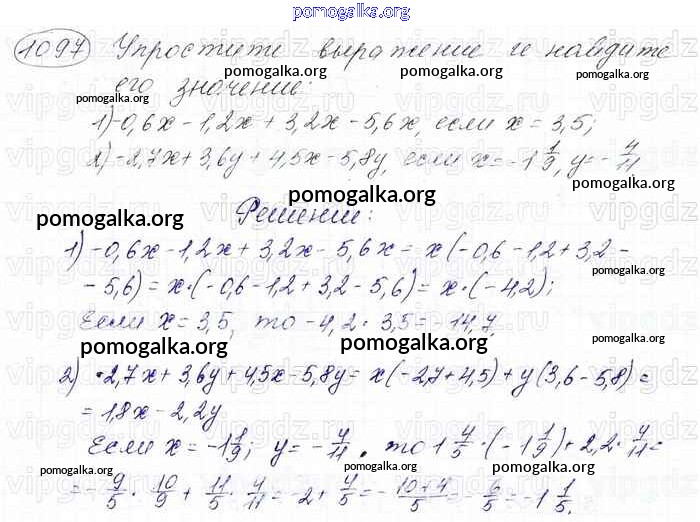 pomogalka.org
1097 Упростите выражение и найдите
pomogalka.org pomogalka.org pomogalka.org
его значение:
pomogalka.org
1) -0,6x - 1,2x + 3,2x - 5,6x, если x = 3,5;
pomogalka.org pomogalka.org
2) -2,7x + 3,6y + 4,5x - 5,8y, если x = -1 1/9, y = -4/11
pomogalka.org
pomogalka.org
Решение:
pomogalka.org
1) -0,6x - 1,2x + 3,2x - 5,6x = x(-0,6 - 1,2 + 3,2 -
- 5,6) = x·(-0,6 - 1,2 + 3,2 - 5,6) = x·(-4,2);
pomogalka.org
Если x = 3,5, то -4,2 · 3,5 = -14,7.
pomogalka.org pomogalka.org
2) -2,7x + 3,6y + 4,5x - 5,8y = x(-2,7 + 4,5) + y(3,6 - 5,8) =
= 1,8x - 2,2y
pomogalka.org
Если x = -1 1/9; y = -4/11, то 1 4/5 · (-1 1/9) + 2,2 · 4/11 =
pomogalka.org pomogalka.org pomogalka.org
= -9/5 · 10/9 + 11/5 · 4/11 = -2 + 4/5 = -10+4/5 = -6/5 = -1 1/5.